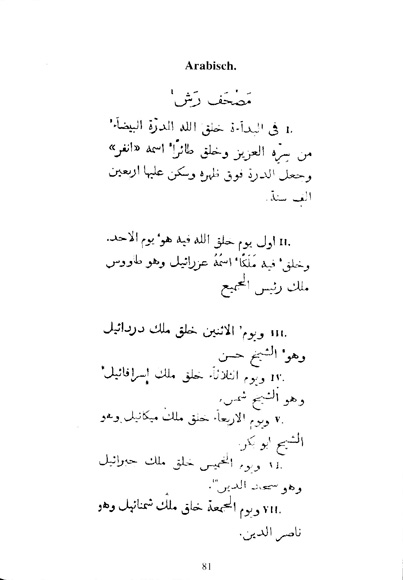 Arabisch.
مَصْحَف رَش
I. فى البدأة خلق الله الدرّة البيضاء
من سِرّه العزيز وخلق طائرًا اسمه «انفر»
وجعل الدرة فوق ظهره وسكن عليها اربعين
الف سنة.
II. اول يوم خلق الله فيه هو يوم الاحد.
وخلق فيه مَلَكًا اسمُهُ عزرائيل وهو طاووس
ملك رئيس الجميع
III. ويوم الاثنين خلق ملك دردائيل
وهو الشيخ حسن
IV. ويوم الثلاثا خلق ملك إسرافائيل
وهو الشيخ شمس.
V. ويوم الاربعا خلق ملك ميكائيل وهو
الشيخ ابو بكر.
VI. ويوم الخميس خلق ملك جبرائيل
وهو الدين.
VII. ويوم الجمعة خلق ملك شمنائيل وهو
ناصر الدين.
81